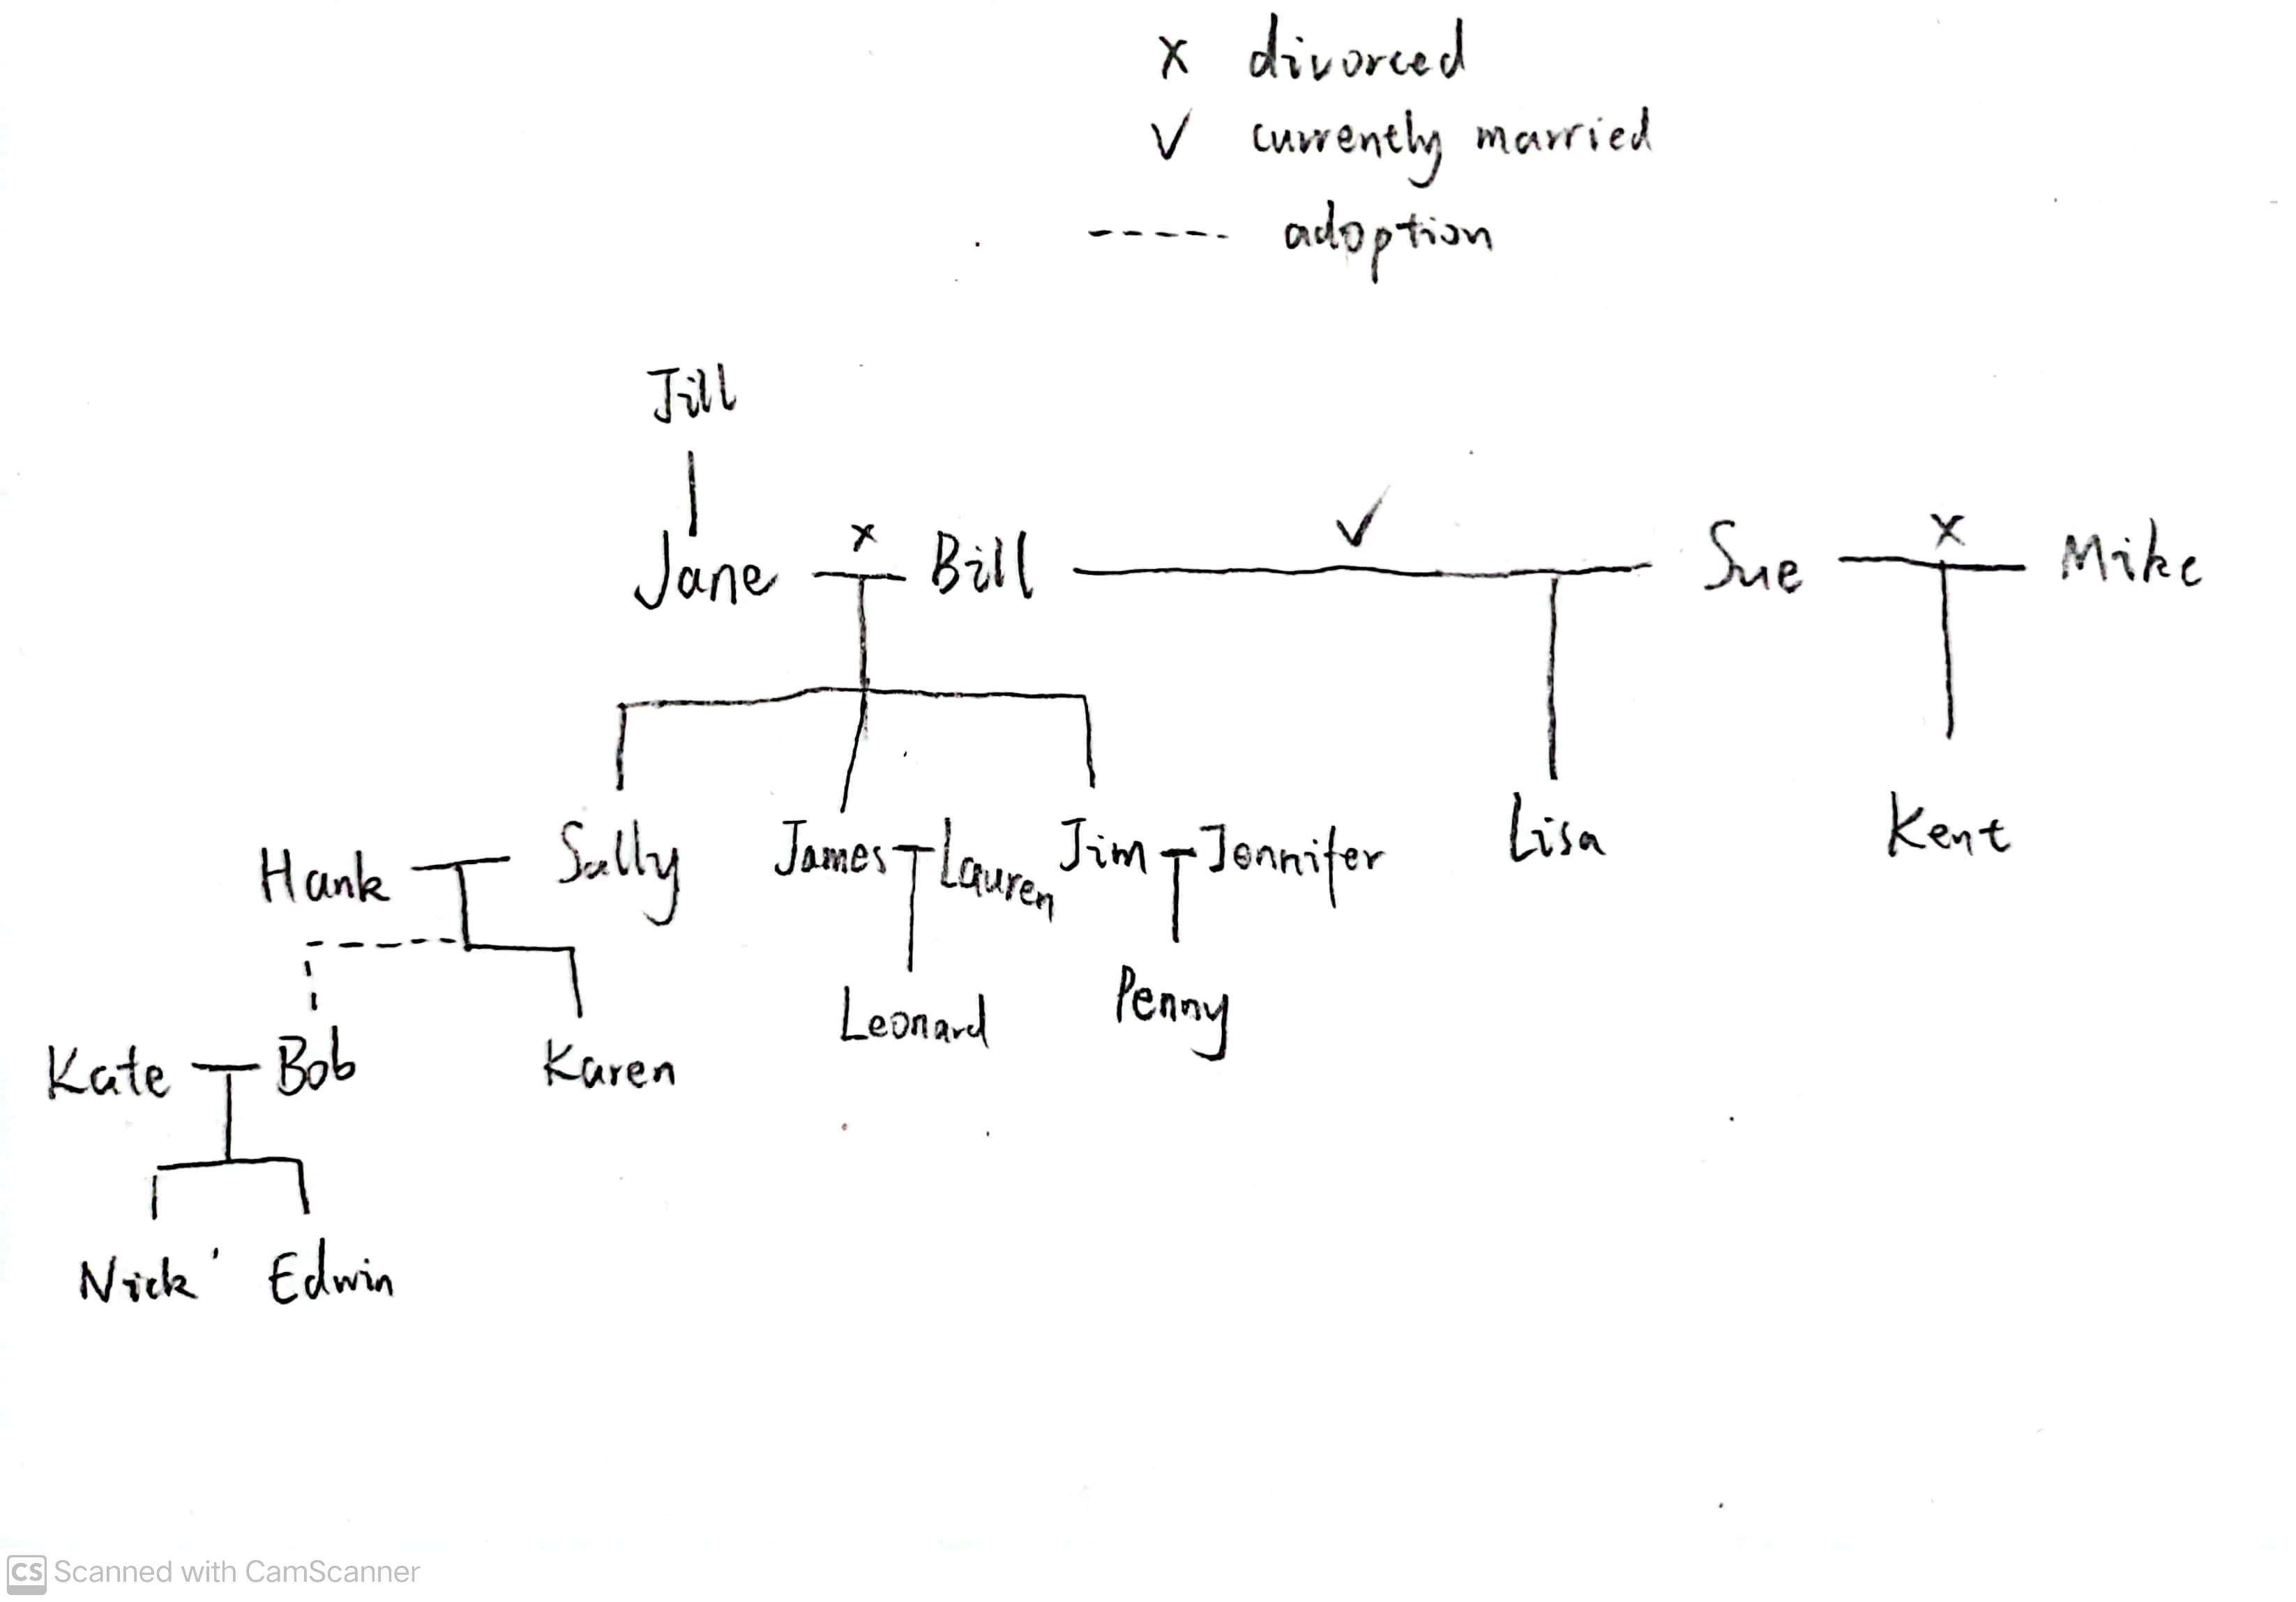 x divorced
✓ currently married
----- adoption
Jill
Jane x Bill ✓ Sue x Mike
Hank Sally James Lauren Jim Jennifer Lisa Kent
Kate Bob Karen Leonard Penny
Nick Edwin
CS Scanned with CamScanner